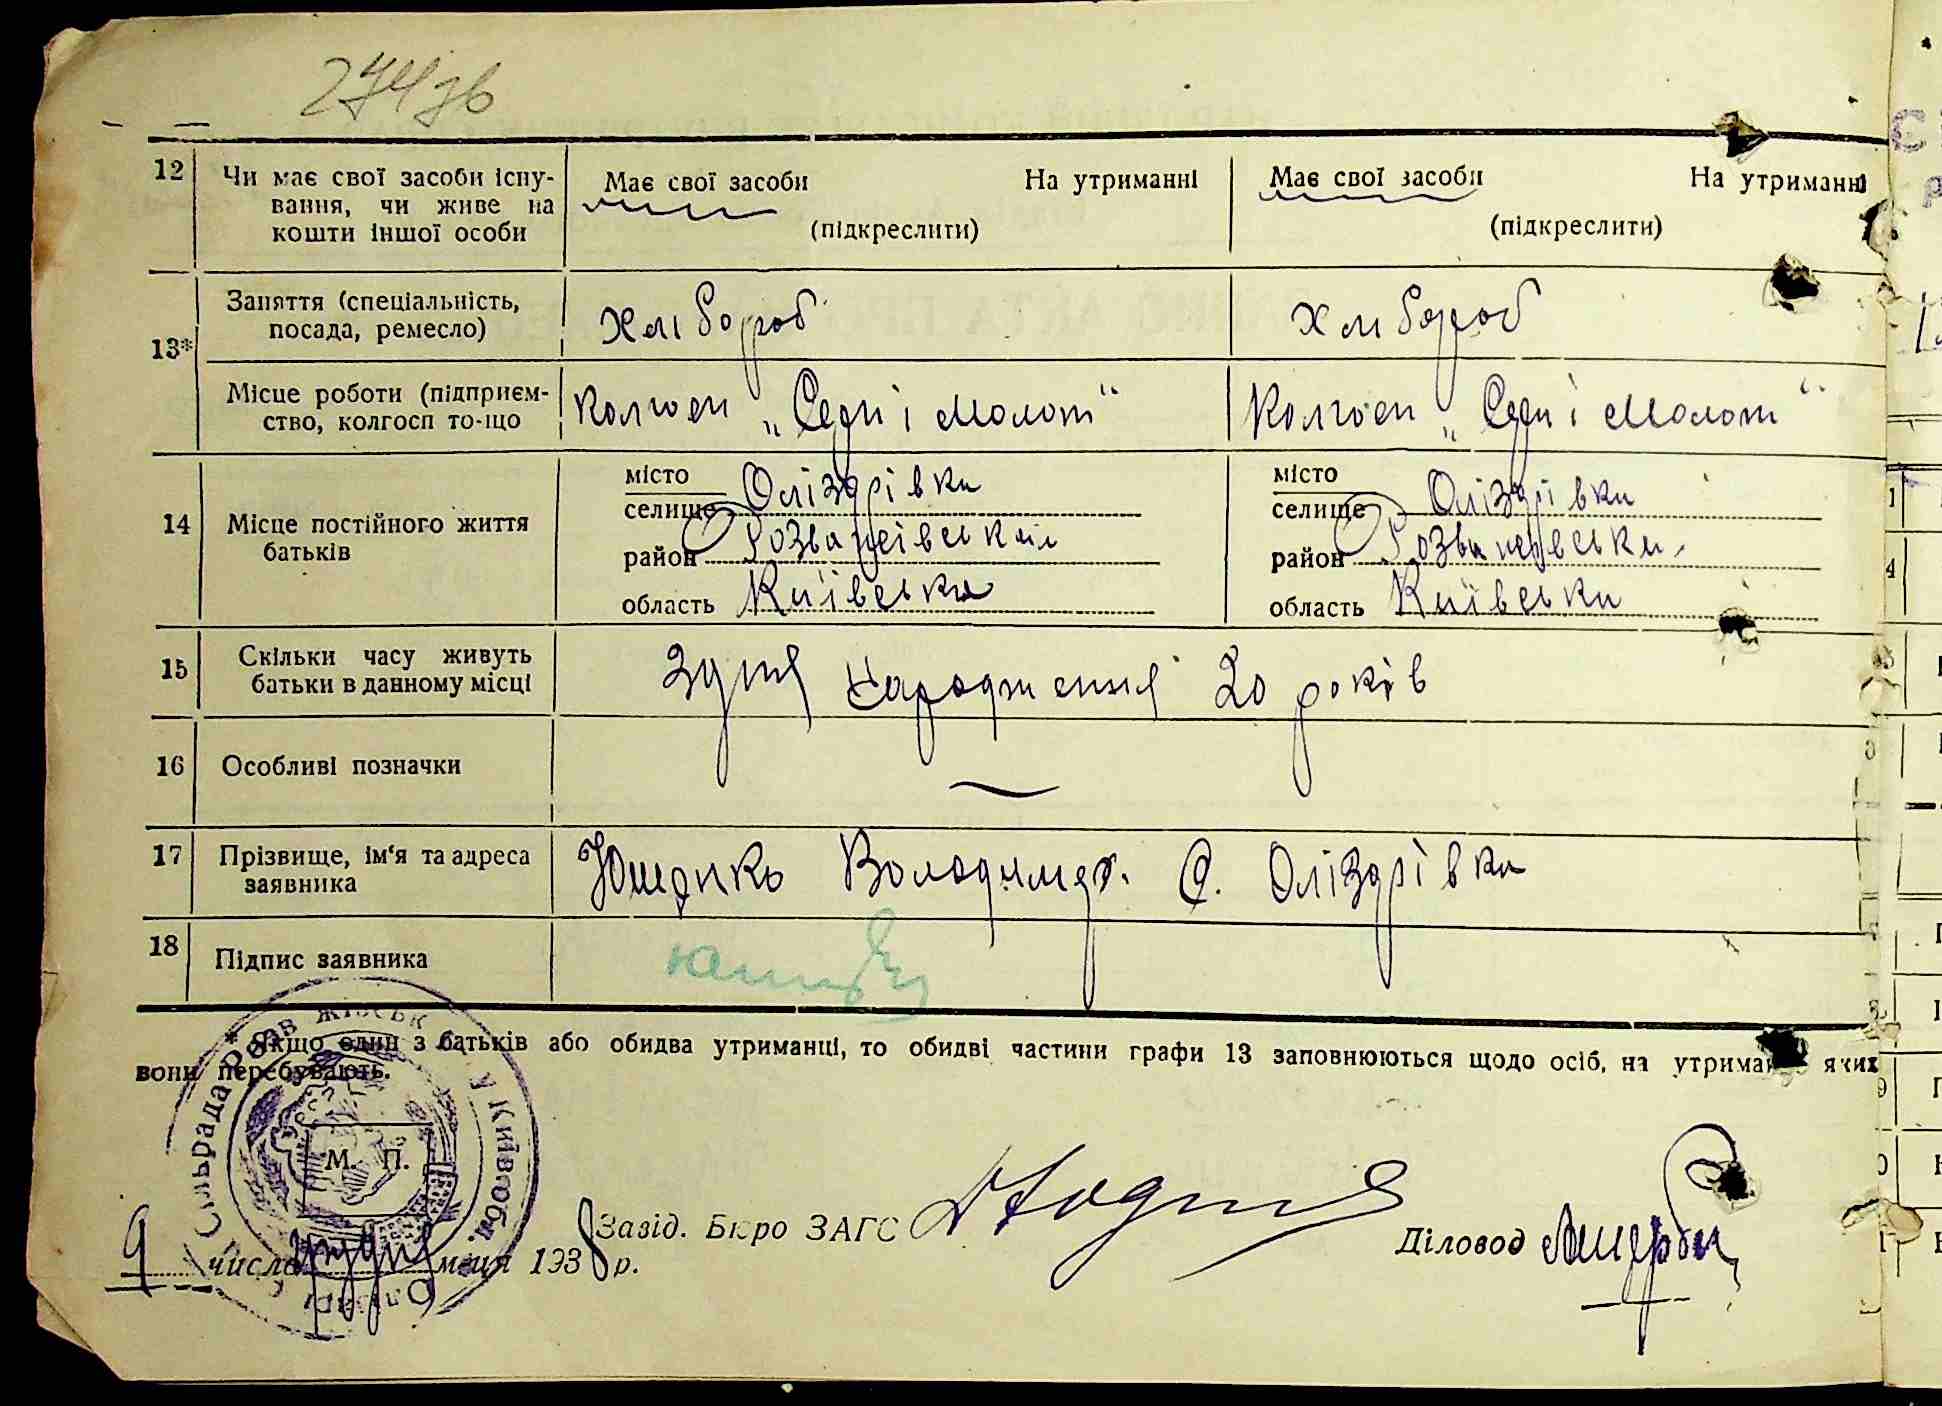 274зв
12 Чи має свої засоби існу- Має свої засоби На утриманні Має свої засоби На утриманні
вання, чи живе на
кошти іншої особи (підкреслити) (підкреслити)
13* Заняття (спеціальність, Хлібороб Хлібороб
посада, ремесло)
Місце роботи (підприєм- Колгосп „Серп і Молот" Колгосп „Серп і Молот"
ство, колгосп то-що
14 Місце постійного життя місто Оліздрівка місто Оліздрівка
батьків селище селище
район Розважівський район Розважевськи
область Київська область Київська
15 Скільки часу живуть здня народження 20 років
батьки в данному місці
16 Особливі позначки —
17 Прізвище, ім'я та адреса Ющенко Володимер. С. Оліздрівка
заявника
18 Підпис заявника
* Якщо один з батьків або обидва утриманці, то обидві частини графи 13 заповнюються щодо осіб, на утриманні яких
вони перебувають.
Сільрада Розважівськ у Київ. обл.
М. П.
9 число грудня м-ця 1938 р. Завід. Бюро ЗАГС Діловод